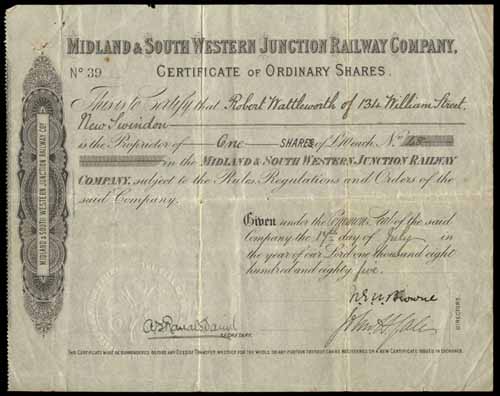 MIDLAND & SOUTH WESTERN JUNCTION RAILWAY COMPANY,
Nº 39 CERTIFICATE OF ORDINARY SHARES.
This is to Certify that Robert Wattleworth of 134 William Street,
New Swindon
is the Proprietor of One SHARE of £10 each, Nº
in the MIDLAND & SOUTH WESTERN JUNCTION RAILWAY
COMPANY, subject to the Rules, Regulations and Orders of the
said Company.
Given under the Common Seal of the said
Company the 17th day of July in
the year of our Lord one thousand eight
hundred and eighty five.
DIRECTORS.
SECRETARY.
THIS CERTIFICATE MUST BE SURRENDERED BEFORE ANY DEED OF TRANSFER, WHETHER FOR THE WHOLE OR ANY PORTION THEREOF CAN BE REGISTERED OR A NEW CERTIFICATE ISSUED IN EXCHANGE.
MIDLAND & SOUTH WESTERN JUNCTION RAILWAY COY